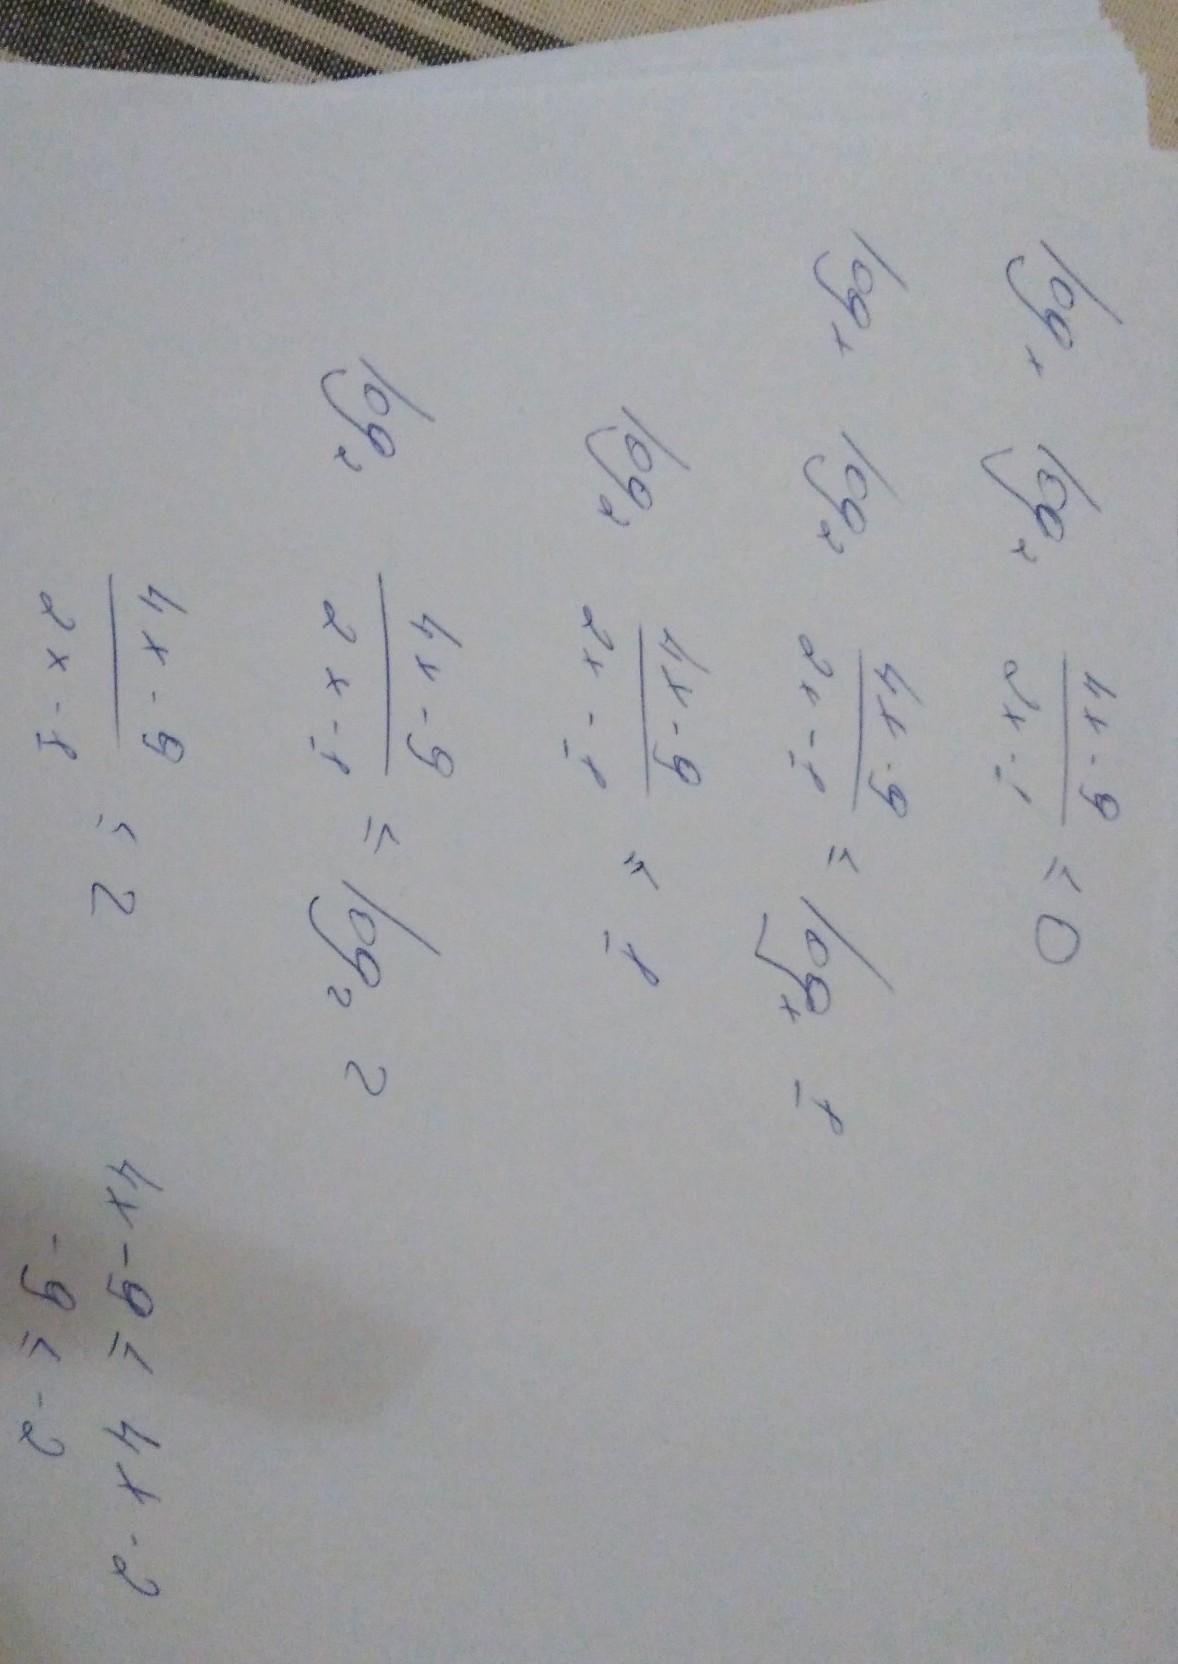 log_x log_2 (4x-9)/(2x-1) ≤ 0
log_x log_2 (4x-9)/(2x-1) ≤ log_x 1
log_2 (4x-9)/(2x-1) ≤ 1
log_2 (4x-9)/(2x-1) ≤ log_2 2
(4x-9)/(2x-1) ≤ 2
4x-9 ≤ 4x-2
-9 ≤ -2